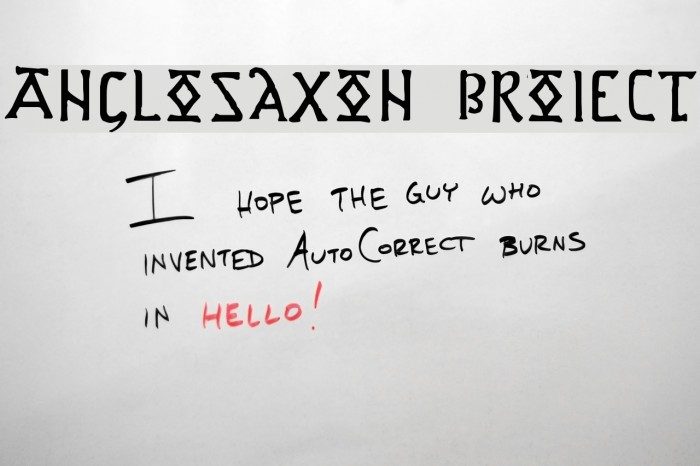 ANGLOSAXON BROIECT
I HOPE THE GUY WHO
INVENTED AUTOCORRECT BURNS
IN HELLO!